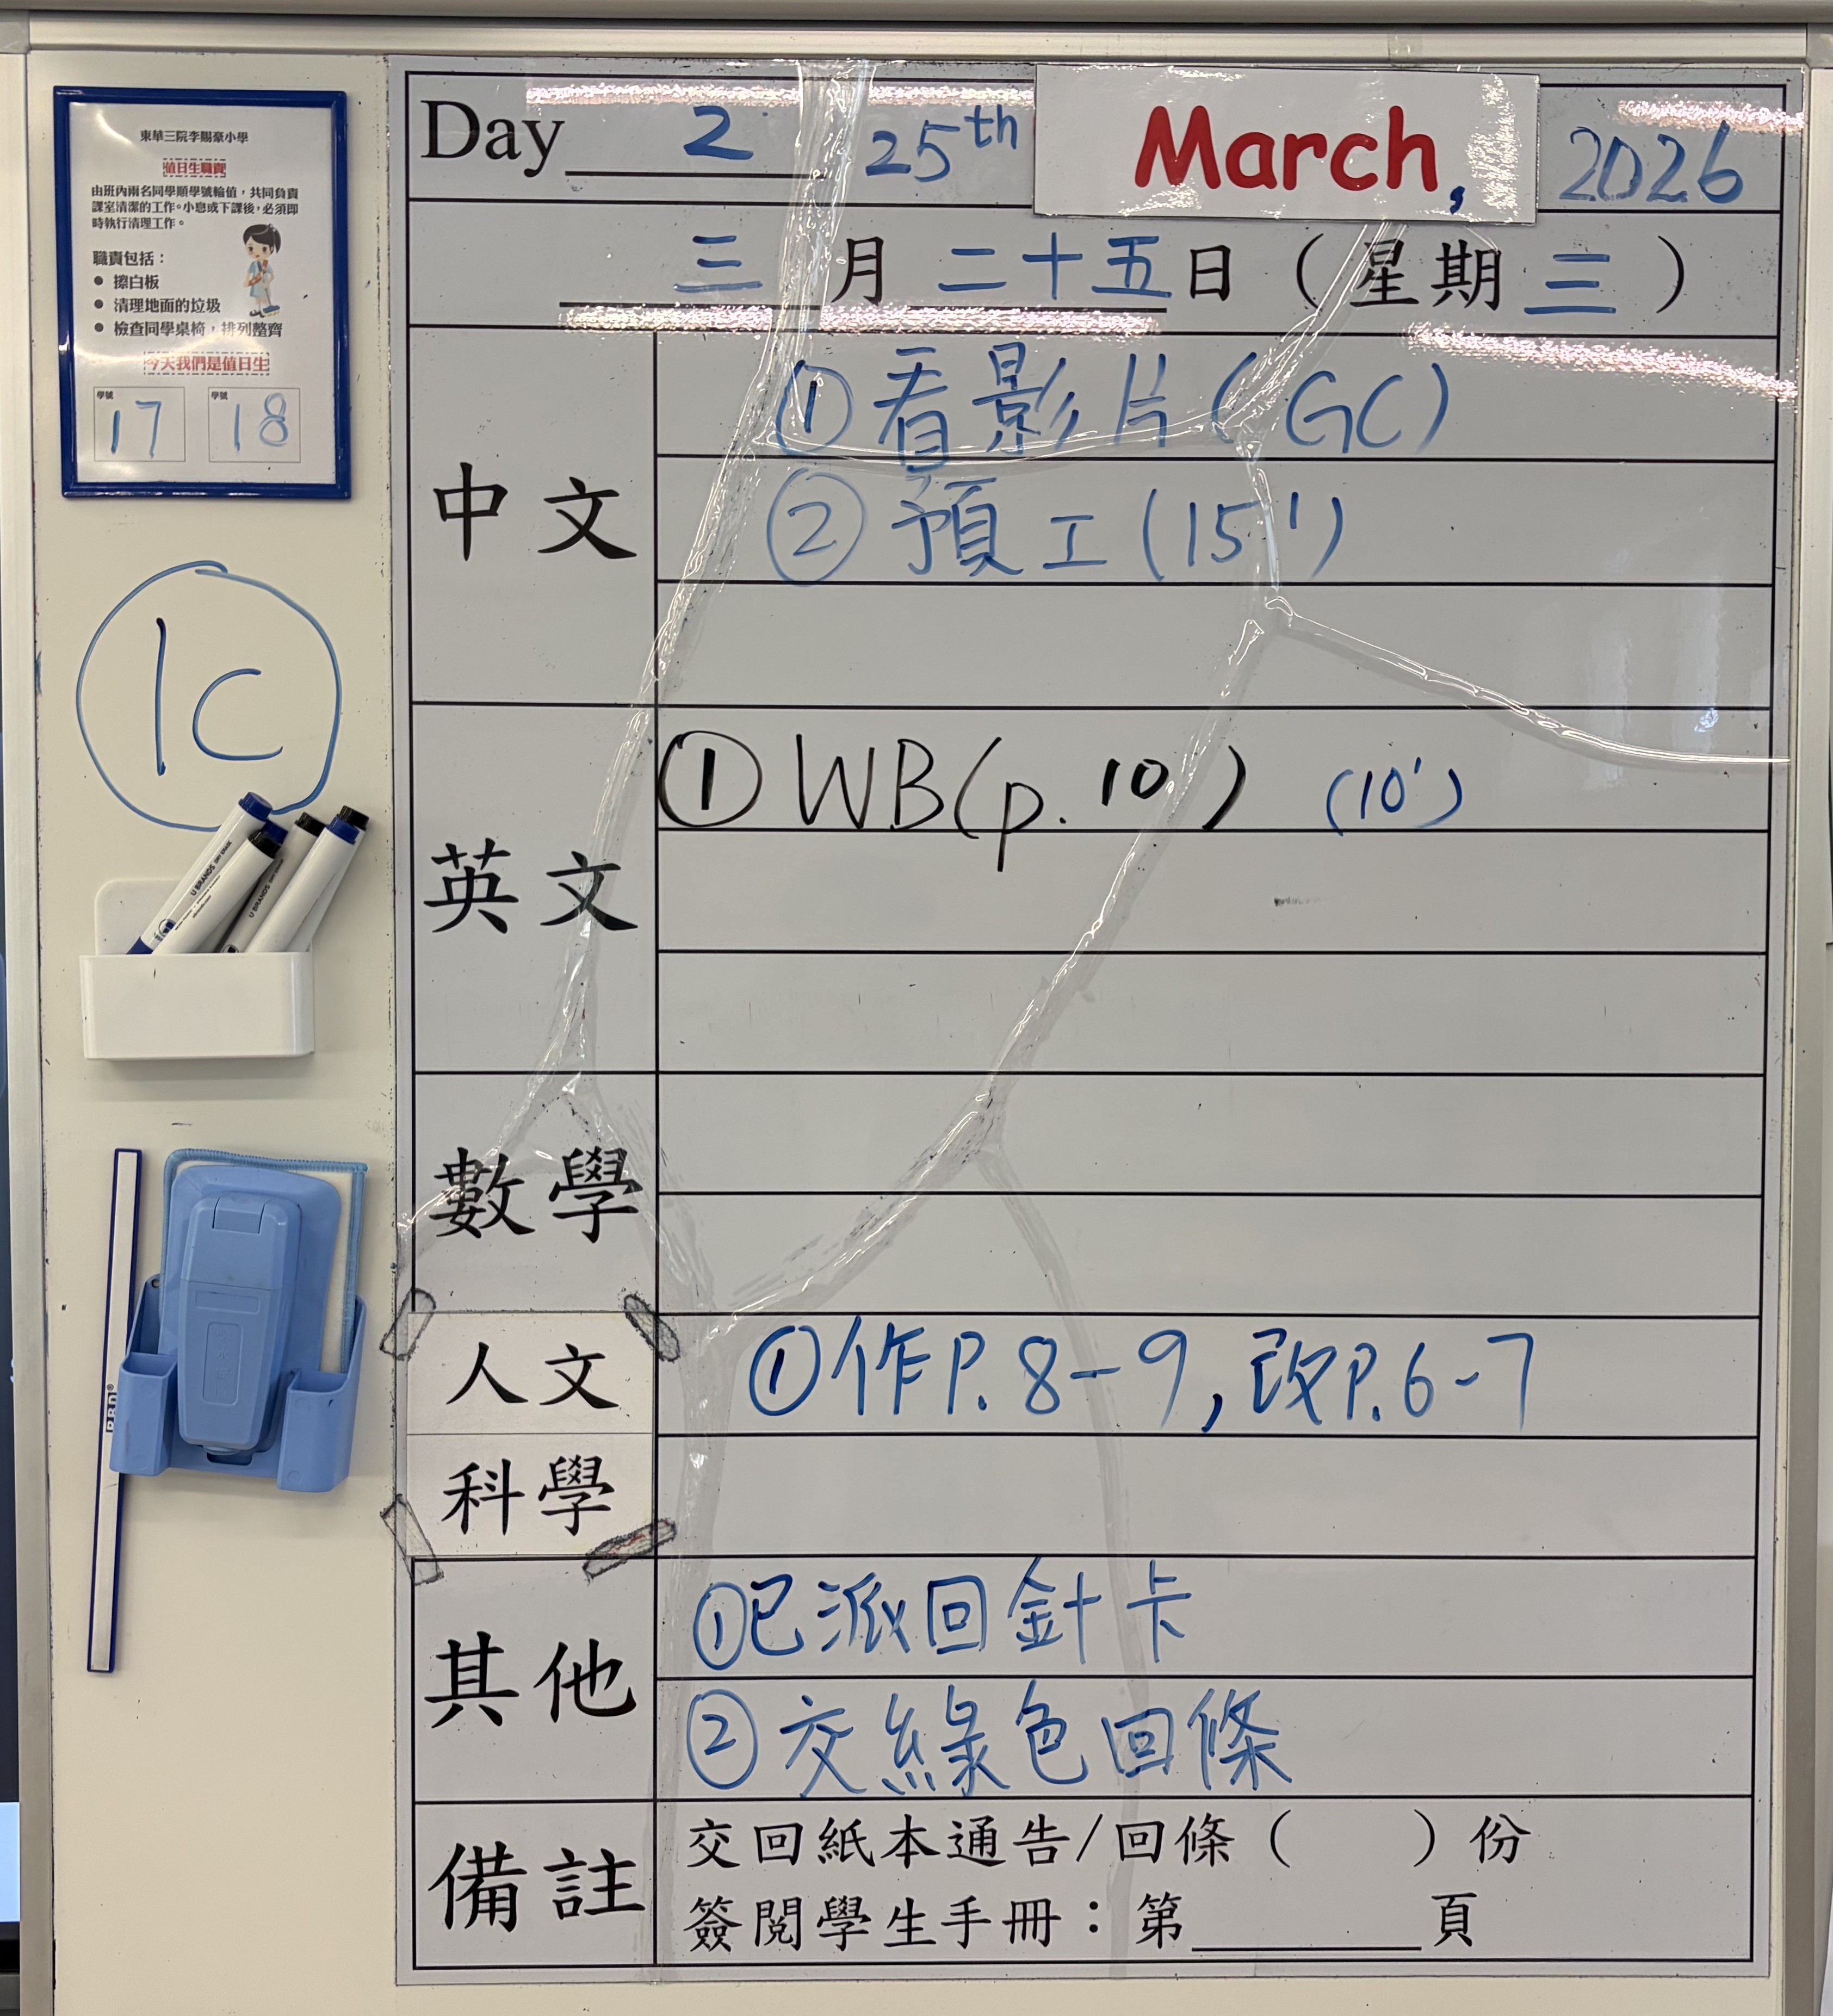 東華三院李賜豪小學
值日生職責
由班內兩名同學順學號輪值，共同負責
課室清潔的工作。小息或下課後，必須即
時執行清理工作。
職責包括：
● 擦白板
● 清理地面的垃圾
● 檢查同學桌椅，排列整齊
今天我們是值日生
學號 17 學號 18
1C
U BRANDS
U BRANDS
Day 2 25th March, 2026
三月二十五日（星期三）
中文
①看影片(GC)
②預工(15')
英文
①WB(p.10) (10')
數學
人文
科學
①作P.8-9,改P.6-7
其他
①已派回針卡
②交綠色回條
備註
交回紙本通告/回條（ ）份
簽閱學生手冊：第______頁